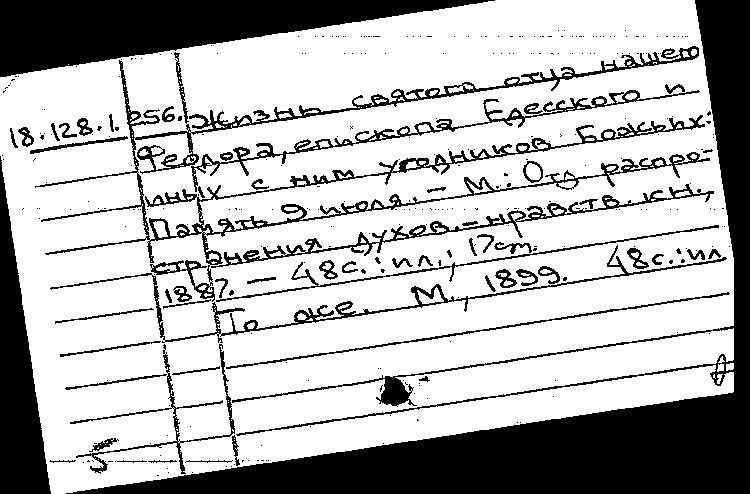 18.128.1. 256. Жизнь святого отца нашего
Феодора, епископа Едесского и
иных с ним угодников Божьих:
Память 9 июля. – М.: Отд распро-
странения духов.-нравств. кн.,
1887. – 48с.: ил.; 17см.
То же. М., 1899. 48с.: ил
5